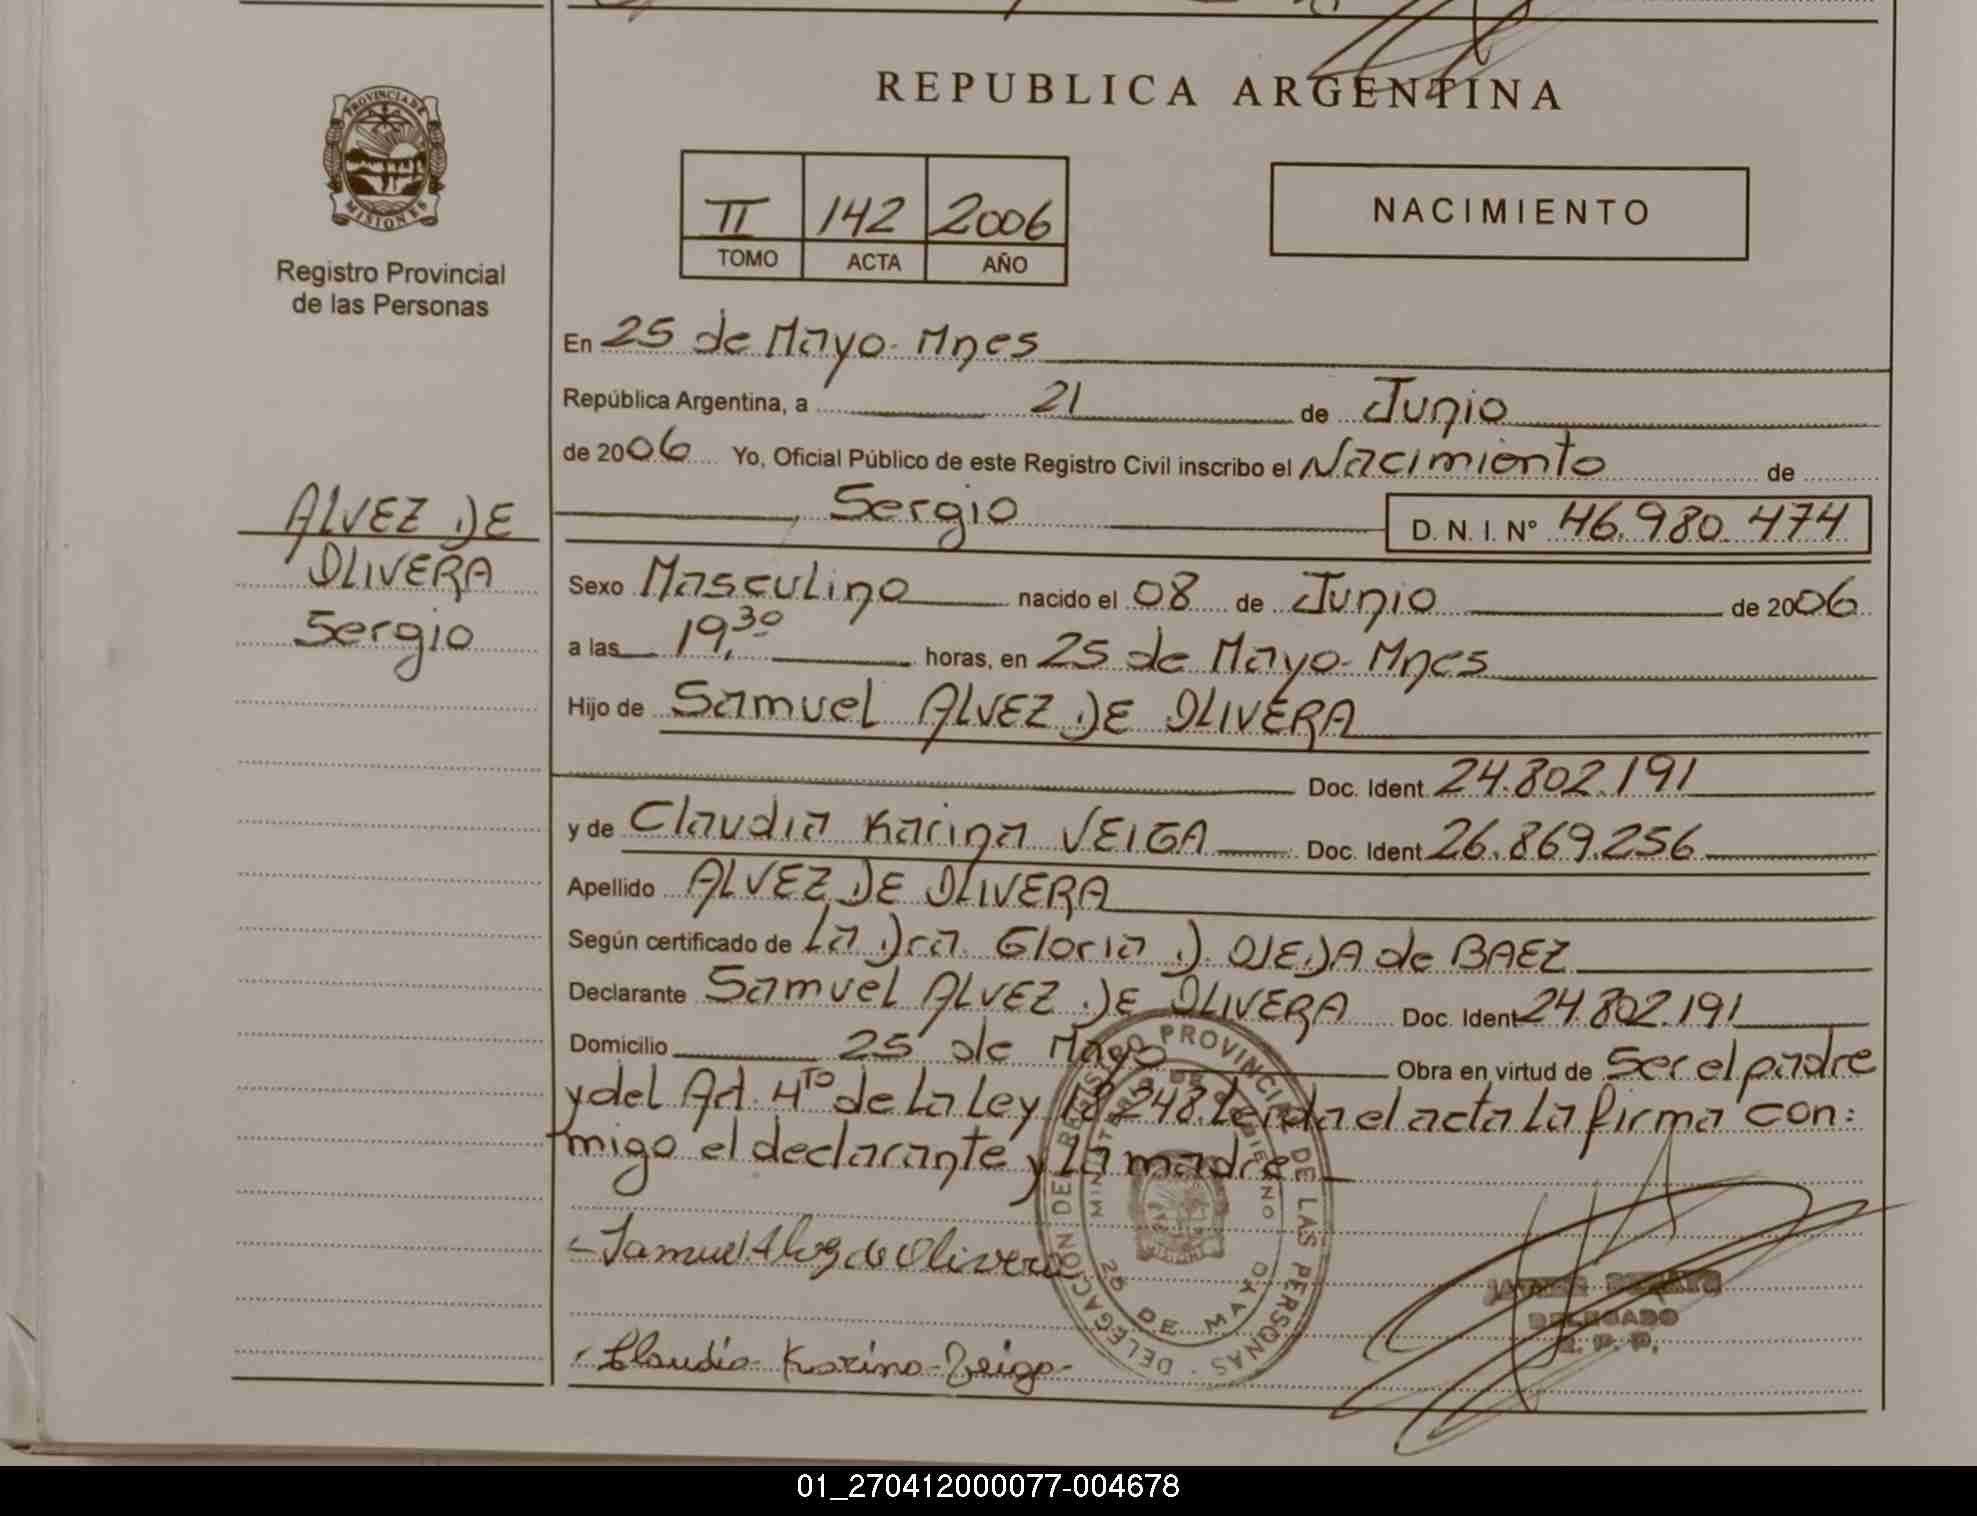 REPUBLICA ARGENTINA
PROVINCIA DE MISIONES
Registro Provincial
de las Personas
II 142 2006
TOMO ACTA AÑO
NACIMIENTO
En 25 de Mayo - Mnes
República Argentina, a 21 de Junio
de 2006 Yo, Oficial Público de este Registro Civil inscribo el Nacimiento de
Sergio D. N. I. Nº 46.980.474
ALVEZ DE
OLIVERA
Sergio
Sexo Masculino nacido el 08 de Junio de 2006
a las 19,30 horas, en 25 de Mayo - Mnes
Hijo de Samuel ALVEZ DE OLIVERA
Doc. Ident 24.802.191
y de Claudia Karina VEIGA Doc. Ident 26.869.256
Apellido ALVEZ DE OLIVERA
Según certificado de La Dra. Gloria D. OJEDA de BAEZ
Declarante Samuel ALVEZ DE OLIVERA Doc. Ident 24.802.191
Domicilio 25 de Mayo Obra en virtud de Ser el padre
y del Art. 4to de La Ley 18.248. Leida el acta La firma con:
migo el declarante y La madre
Samuel Alvez de Olivera
Claudia Karina Veiga
DELEGACIÓN DEL REGISTRO PROVINCIAL DE LAS PERSONAS
MINISTERIO DE GOBIERNO
25 DE MAYO
DELEGADO
R. P. P.
01_270412000077-004678